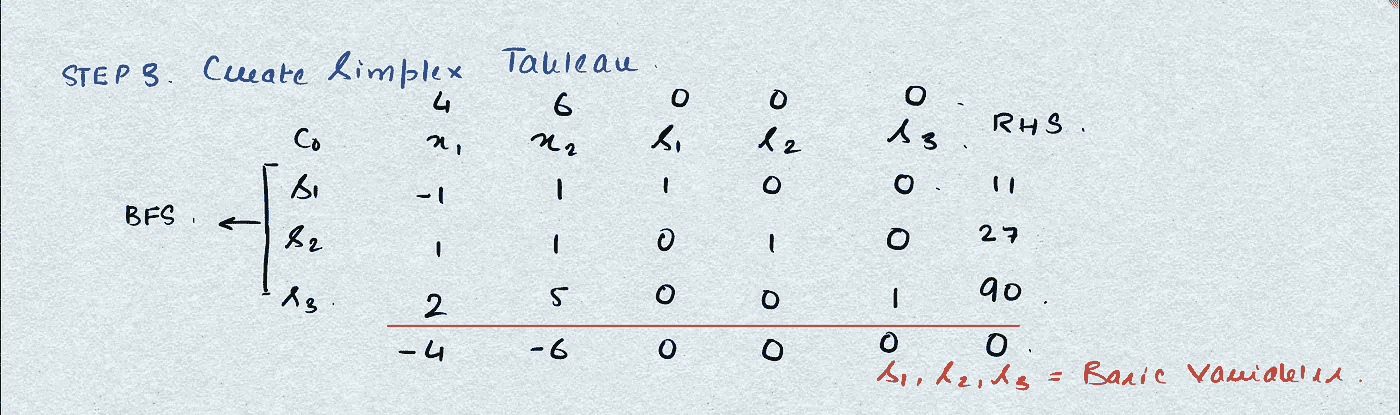 STEP 3. Create Simplex Tableau.
4 6 0 0 0
C₀ x₁ x₂ s₁ s₂ s₃ RHS.
s₁ -1 1 1 0 0 11
BFS. ← s₂ 1 1 0 1 0 27
s₃ 2 5 0 0 1 90
-4 -6 0 0 0 0
s₁, s₂, s₃ = Basic Variables.